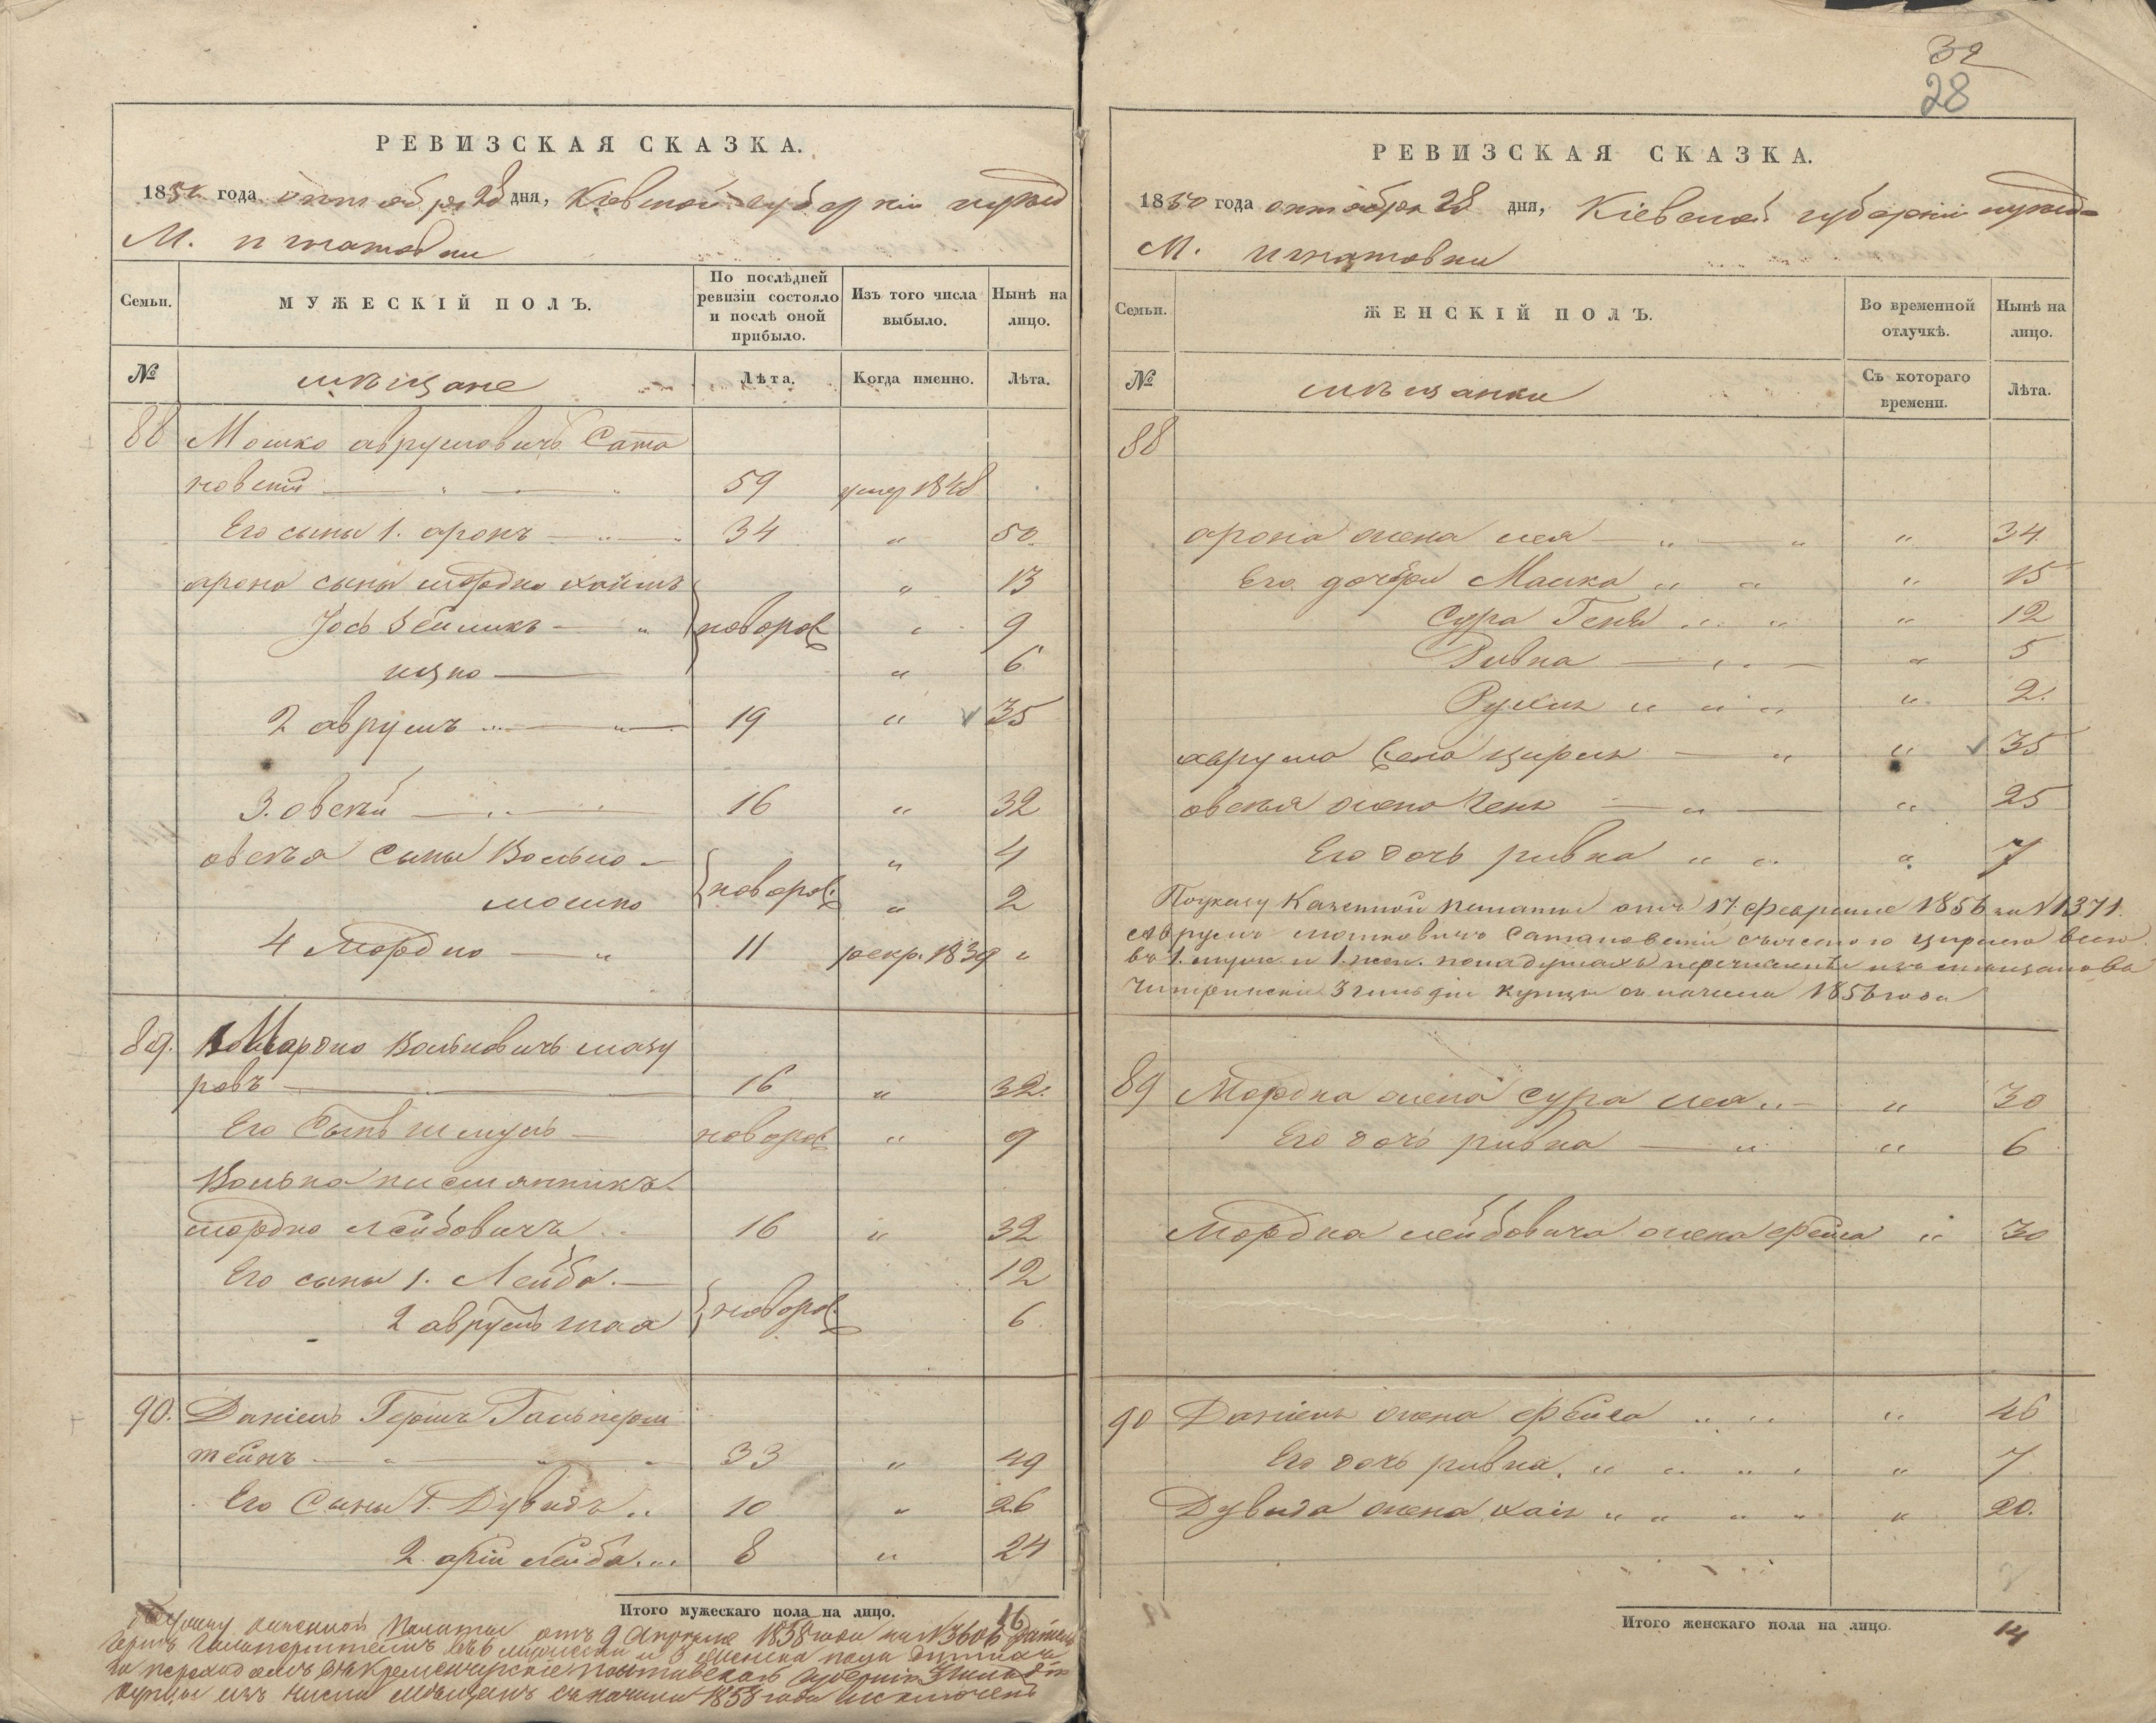 РЕВИЗСКАЯ СКАЗКА.
1850 года октября 28 дня, Кіевской губерніи
М. игнатовки
Семьи.
МУЖЕСКІЙ ПОЛЪ.
По послѣдней ревизіи состояло и послѣ оной прибыло.
Изъ того числа выбыло.
Нынѣ на лицо.
№
мѣщане
Лѣта.
Когда именно.
Лѣта.
88 Мошко аврумовичъ Сата
новскій 59 умер 1848
Его сыны 1. аронъ 34 " 50
арона сыны мордко хаимъ " 13
Іось Зейликъ новорож " 9
ицко " 6
2 аврумъ 19 " 35
3. овсѣй 16 " 32
овсѣя сыны Волько " 4
мошко новорож " 2
4 Мордко 11 рекр. 1839 "
89. Мордко Вольковичъ мазу
ровъ 16 " 32.
Его Сынъ шмуль новорож " 9
Волько
мордко лейбовичъ 16 " 32
Его сыны 1. Лейба 12
2 аврумъ шая новорож 6
90. Даніель Гершъ Гальперш
тейнъ 33 " 49
Его Сыны 1. Дувидъ 10 " 26
2. арій лейба 8 " 24
Итого мужескаго пола на лицо. 16
По указу казенной Палаты отъ 9 Апрѣля 1858 года за №3606 Даніель
Гершъ Гальперштейнъ женска пола душами
за переходомъ въ Кременчугскіе Полтавской Губерніи 3 гильдіи
купцы изъ числа мѣщанъ съ начала 1858 года исключенъ
32
28
РЕВИЗСКАЯ СКАЗКА.
1850 года октября 28 дня, Кіевской губерніи
М. игнатовки
Семьи.
ЖЕНСКІЙ ПОЛЪ.
Во временной отлучкѣ.
Нынѣ на лицо.
№
мѣщанки
Съ котораго времени.
Лѣта.
88
арона жена лея " 34
Его дочери Малка " 15
Сура Геня " 12
Ривка " 5
Рухля " 2.
аврума жена цирля " 35
овсѣя жена Геня " 25
Его дочь ривка " 7
По указу Казенной палаты отъ 17 февраля 1856 за №1371.
аврумъ мошковичъ Сатановскій съ женою цирлею всего
въ 1. муж. и 1. жен. пола душахъ перечисленъ изъ мѣщанъ въ
3 гильдіи купцы съ начала 1856 года
89 Мордка жена Сура лея " 30
Его дочь ривка " 6
Мордка лейбовича жена фейга " 30
90 Даніеля жена фейга " 46
Его дочь ривка " 7
Дувида жена хая " 20.
Итого женскаго пола на лицо. 14